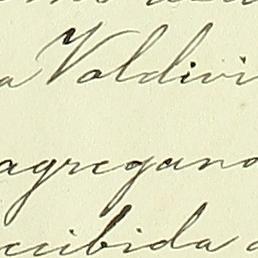 a Valdivi
agregano
ecibida a